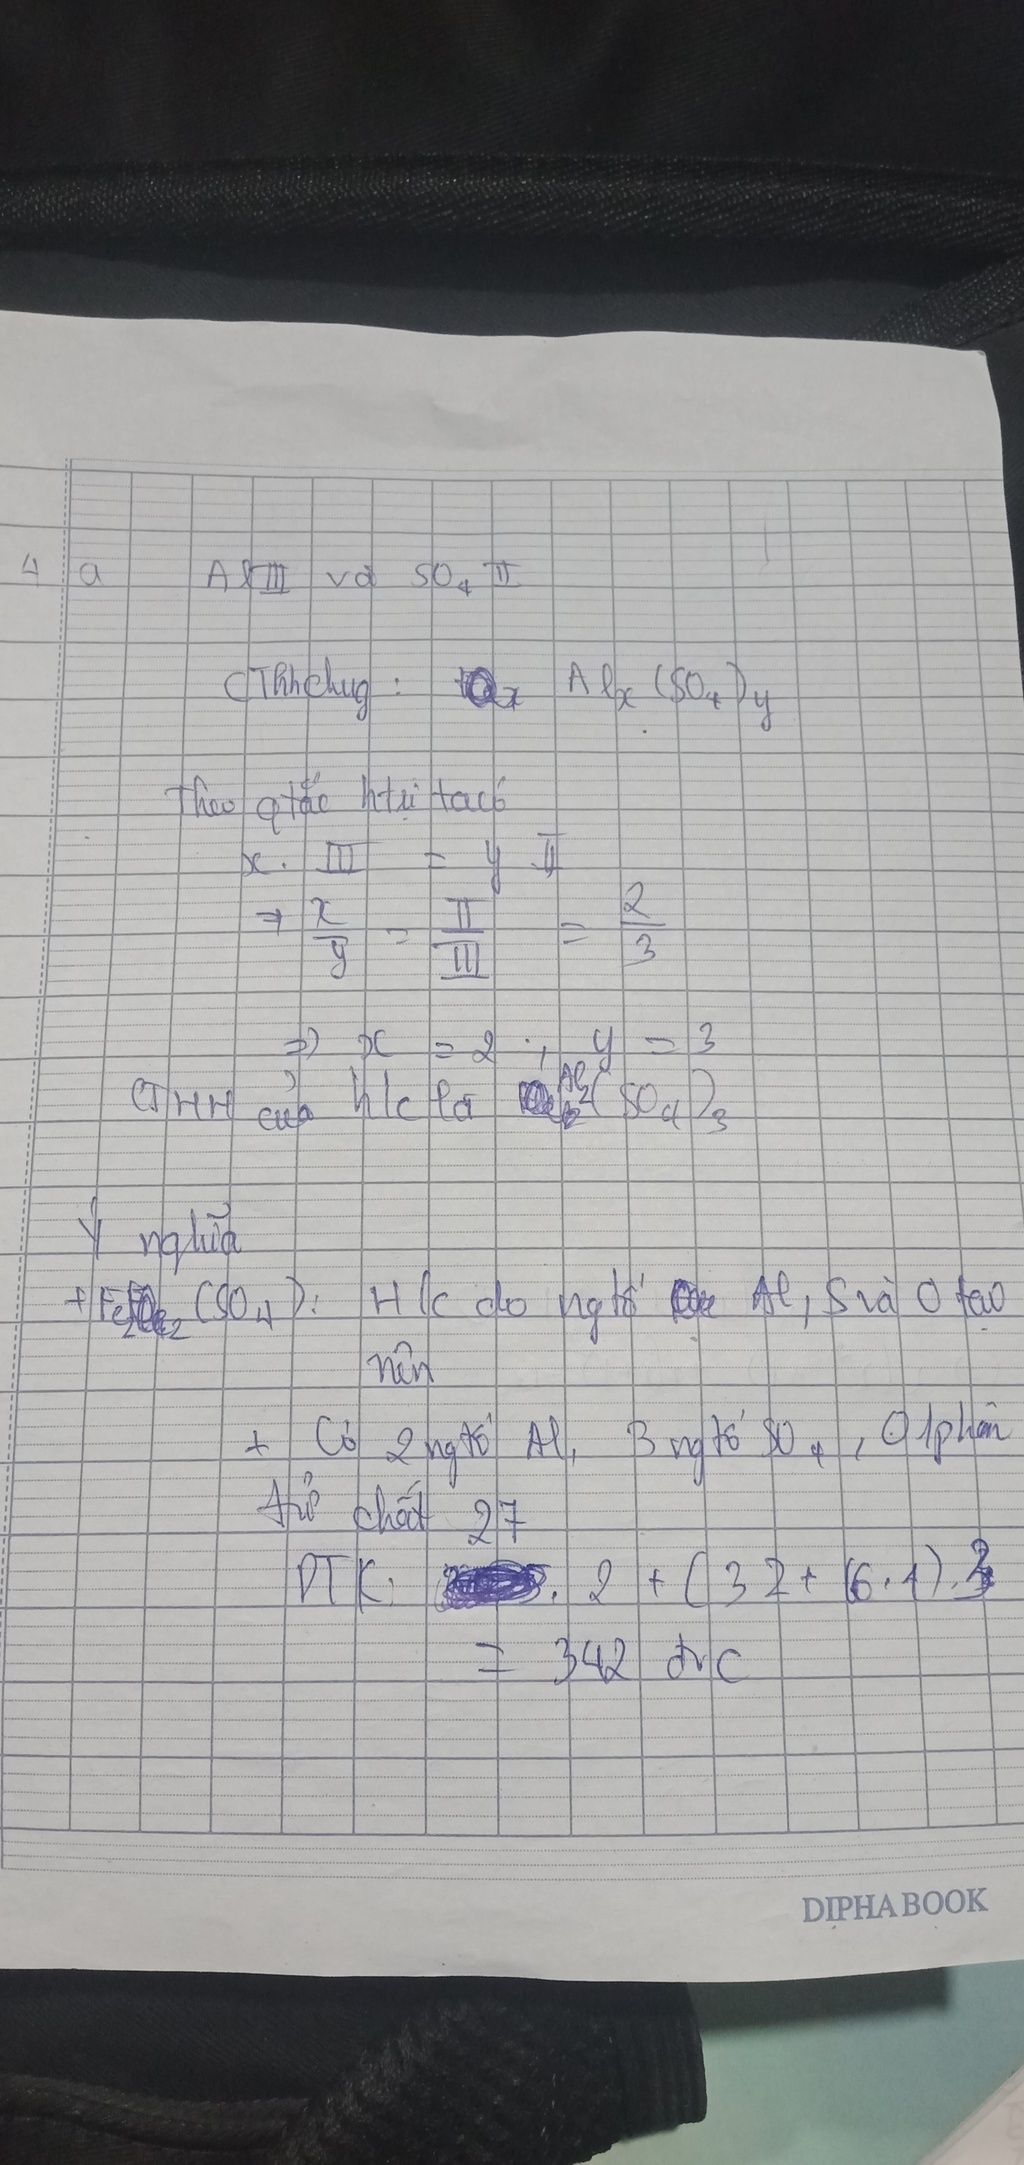 4 a Al III và SO₄ II
CTHHchug: x Alx(SO₄)y
Theo qtắc htrị ta có
x. III = y II
→ x/y = II/III = 2/3
=> x = 2 ; y = 3
CTHH của h/c là Al2(SO4)3
Ý nghĩa
+ Fe2 (SO4): H/c do ngtố Al, S và O tạo
nên
+ Có 2 ngtố Al, 3 ngtố SO4, O 1 phân
tử chất 27
PTK: . 2 + (32 + 16.4).3
= 342 đvC
DIPHA BOOK